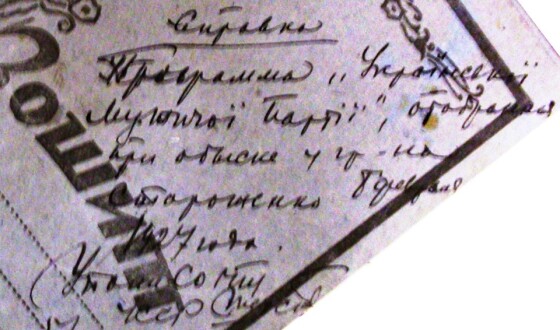 Справка
Программа „Української
Мужичої Партії", отобранная
при обыске у гр-на
Стороженко 8 февраля
1927 года.
ЗОШИТ